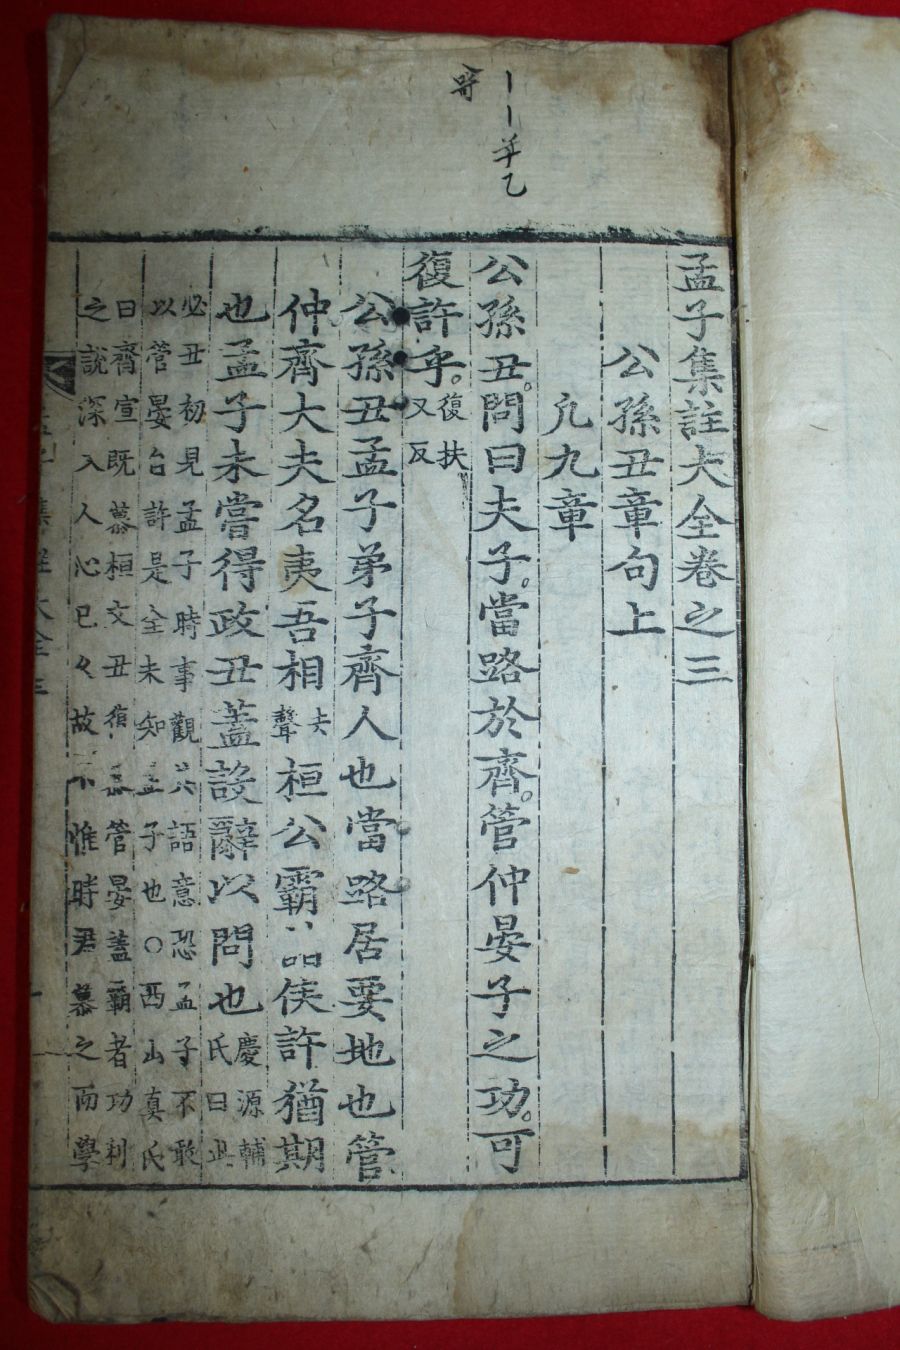 孟子集註大全卷之三
公孫丑章句上
凢九章
公孫丑問曰夫子當路於齊管仲晏子之功可
復許乎
復扶
又反
公孫丑孟子弟子齊人也當路居要地也管
仲齊大夫名夷吾相
去
聲
桓公霸諸侯許猶期
也孟子未嘗得政丑蓋設辭以問也
慶源輔
氏曰此
必丑初見孟子時事觀其語意恐孟子不敢
以管晏自許是全未知孟子也○西山眞氏
曰齊宣旣慕桓文丑復慕管晏蓋霸者功利
之說深入人心已久故不惟時君慕之而學